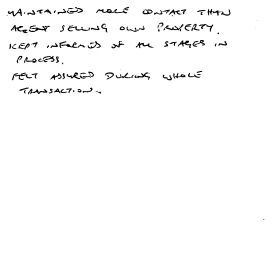 MAINTAINED MORE CONTACT THAN
AGENT SELLING OWN PROPERTY.
KEPT INFORMED OF ALL STAGES IN
PROCESS.
FELT ASSURED DURING WHOLE
TRANSACTION.